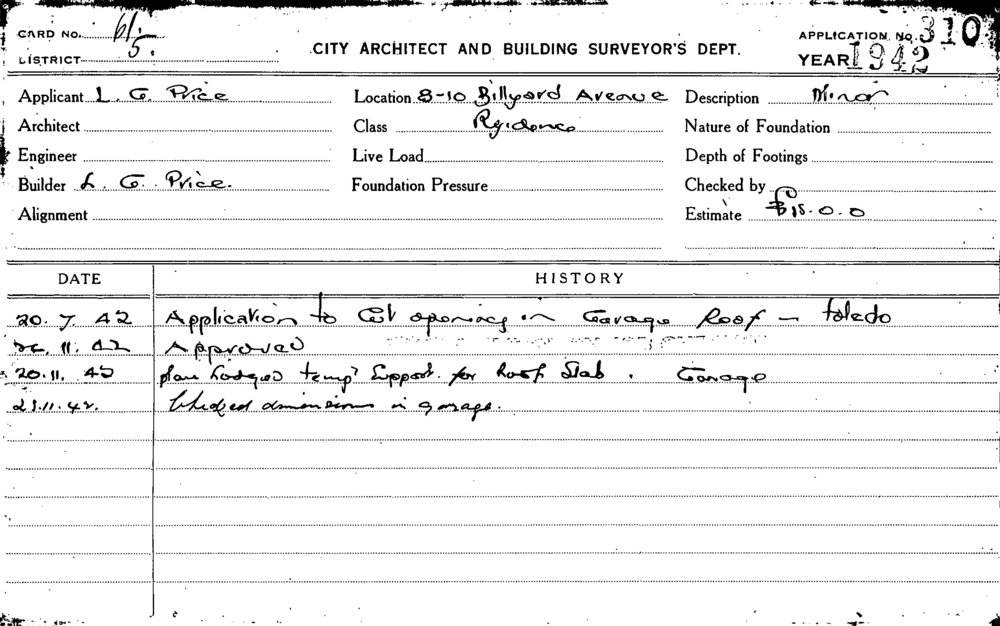 CARD NO. 61.
5.
DISTRICT
CITY ARCHITECT AND BUILDING SURVEYOR'S DEPT.
APPLICATION NO. 310
YEAR 1942
Applicant L. G. Price
Location 8-10 Billyard Avenue
Description Minor
Architect
Class Residence
Nature of Foundation
Engineer
Live Load
Depth of Footings
Builder L. G. Price.
Foundation Pressure
Checked by
Alignment
Estimate £15.0.0
DATE HISTORY
20. 7. 42 Application to Cut opening in Garage Roof - toledo
11. 42 Approved
20.11. 42 plan Lodged temp' Support for Roof Slab. Garage
11.42. Checked dimensions in garage.